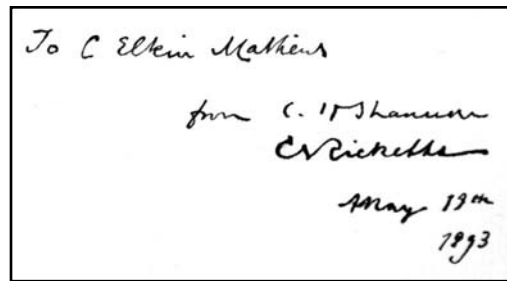 To C Elkin Mathews
from C. H Shannon
CS Ricketts
May 19th
1893